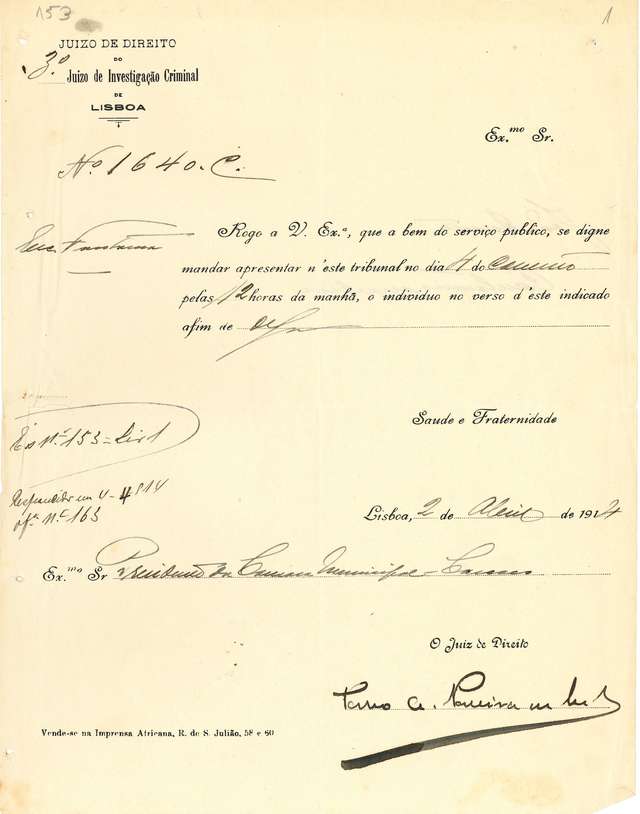 153
1
JUIZO DE DIREITO
DO
3.º Juizo de Investigação Criminal
DE
LISBOA
Ex.mo Sr.
Nº 1640. C.
Rogo a V. Ex.ª, que a bem do serviço publico, se digne
mandar apresentar n'este tribunal no dia 4 do corrente
pelas 12 horas da manhã, o individuo no verso d'este indicado
afim de
Saude e Fraternidade
Nº 153
Respondido em 4-4-914
of.º nº 163
Lisboa, 2 de Abril de 1914
Ex.mo Sr Presidente da Camara Municipal
O Juiz de Direito
Vende-se na Imprensa Africana, R. de S. Julião, 58 e 60